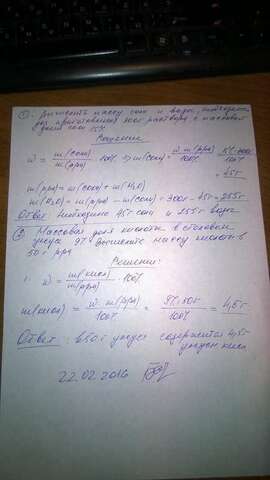 ① Вычислить массу соли и воды, необходим
для приготовления 300г раствора с массовой
долей соли 15%
Решение
W = m(соли) / m(р-ра) · 100% => m(соли) = W · m(р-ра) / 100% = 15% · 300г / 100%
= 45г
m(р-ра) = m(соли) + m(H₂O)
m(H₂O) = m(р-ра) - m(соли) = 300г - 45г = 255г
Ответ: Необходимо 45г соли и 255г воды
② Массовая доля кислоты в столовом
уксусе 9% вычислить массу кислоты в
50г р-ра
Решение:
W = m(кисл) / m(р-ра) · 100%
m(кисл) = W · m(р-ра) / 100% = 9% · 50г / 100% = 4,5г
Ответ: в 50г уксуса содержится 4,5г
уксусн. кисл
22.02.2016